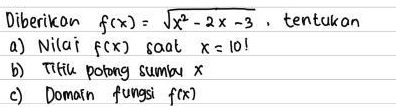 Diberikan f(x) = √x² - 2x - 3 , tentukan
a) Nilai f(x) saat x = 10!
b) Titik potong sumbu x
c) Domain fungsi f(x)